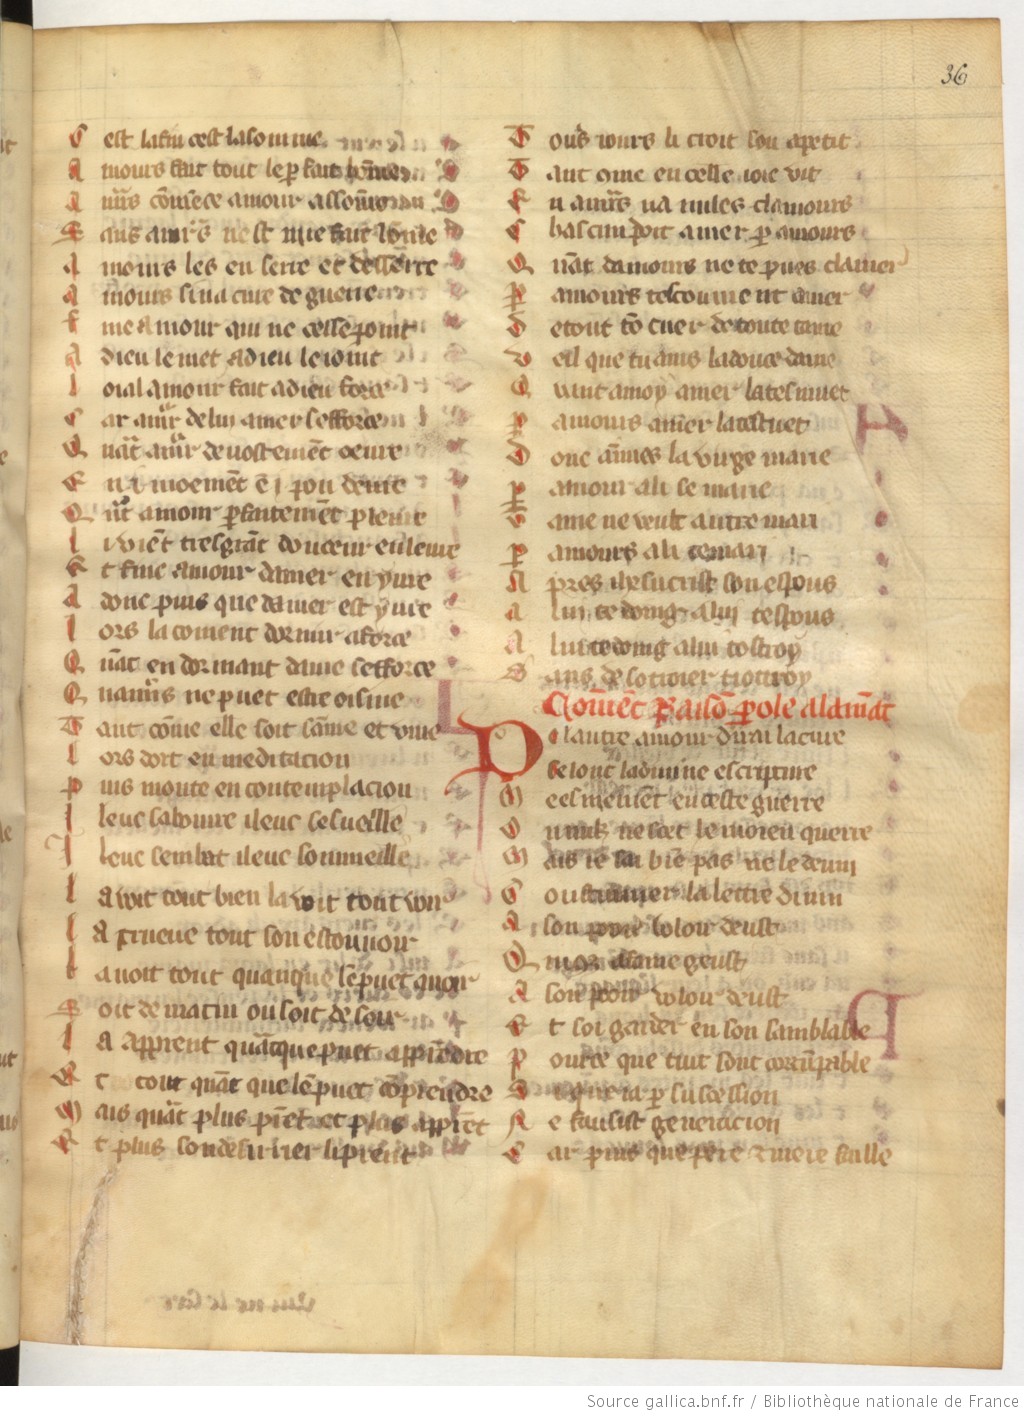 36
C est la fin cest la somme
A mours fait tout le p fait home
A mrs comence amour assome
S ans amrs nest mie fait home
A mours les en serre et desserre
A mours si na cure de guerre
F ine amour qui ne cesse point
A dieu le met a dieu le ioint
L oial amour fait a dieu force
C ar amr de lui amer sefforce
Q uat amr deuostemēt oeure
E n .i. moemēt
Q nt amour pfaitemēt pleure
L i vient tresgrāt douceur en leure
E t fine amour damer enyure
A donc puis que damer est yure
L ors la conuient dormir a force
Q uāt en dormant dame sefforce
Q uamrs ne puet estre oisiue
T ant cōme elle soit saīne et viue
L ors dort en meditacion
P uis monte en contemplacion
I leuc labouire ileuc sesueille
I leuc sembat ileuc sommeille
L a voit tout bien la voit tout voir
L a trueue tout son estouuoir
L a voit tout quanque lē puet auoir
S oit de matin ou soit de soir
L a apprent quātque puet apprēdre
E t tout quāt que lē puet cōprendre
M ais quāt plus prēt et plus apprēt
E t plus son desirrier lesprent
T ous iours li croit son apetit
T ant cōme en celle ioie vit
E n amrs na nulles clamours
C hascun doit amer p amours
Q uāt damours ne te pues clamer
P amours tescouuient amer
D e tout tō cuer de toute tame
V eil que tu aīns la douce dame
Q uant amoy amer la tesmuet
P amours amer la testuet
D onc aīmes la virge marie
P amour a li te marie
T ame ne veult autre mari
P amours a li te mari
A pres ihesucrist son espous
A lui te doing a lui tespous
A lui te doing a lui tottroy
S ans desottroier tottroy
Comēt Raisō pole a lamāt
D e lautre amour dirai la cure
Selonc la diuine escripture
M ees meismēt en ceste guerre
O u nulz ne scet le moien querre
M ais ie sai biē pas ne le deuin
C ontinuer la lettre diuin
A son pooir voloir deust
Q uiconques a fame geust
A son pooir voloir deust
E t soi garder en son samblable
P ource que tuit sont corrūpable
S i que ia p succession
N e fausist generacion
C ar puis que pere et mere faille
Source gallica.bnf.fr / Bibliothèque nationale de France